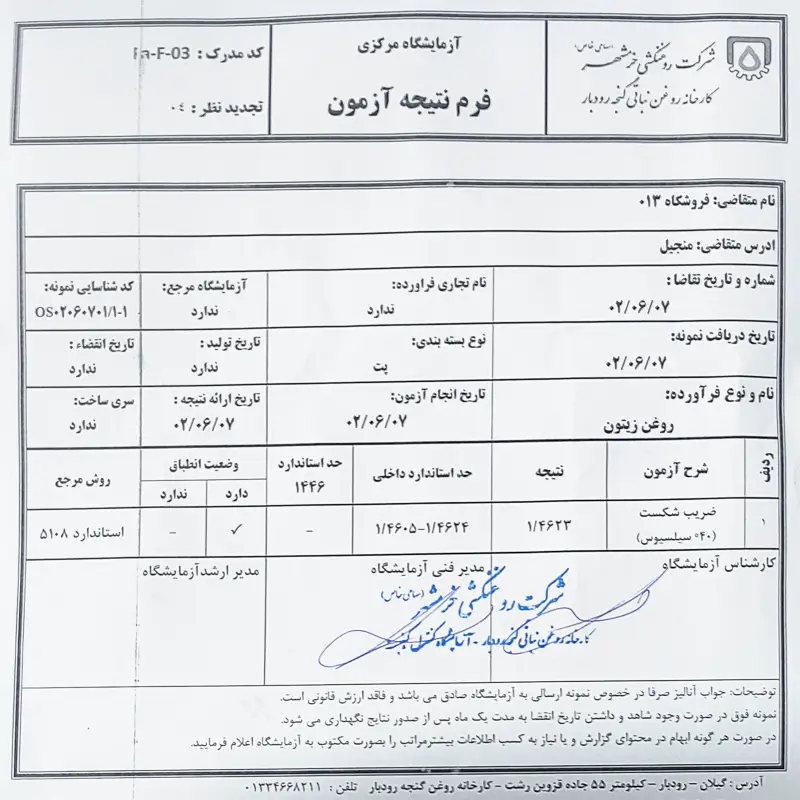 شرکت روغنکشی خرمشهر (سامی خاص)
کارخانه روغن نباتی گنجه رودبار
آزمایشگاه مرکزی
فرم نتیجه آزمون
کد مدرک : Fa-F-03
تجدید نظر : ۰۴
نام متقاضی: فروشگاه ۰۱۳
ادرس متقاضی: منجیل
شماره و تاریخ تقاضا :
۰۲/۰۶/۰۷
نام تجاری فراورده:
ندارد
آزمایشگاه مرجع:
ندارد
کد شناسایی نمونه:
OS۰۲۰۶۰۷۰۱/۱-۱
تاریخ دریافت نمونه:
۰۲/۰۶/۰۷
نوع بسته بندی:
پت
تاریخ تولید :
ندارد
تاریخ انقضاء :
ندارد
نام و نوع فرآورده:
روغن زیتون
تاریخ انجام آزمون:
۰۲/۰۶/۰۷
تاریخ ارائه نتیجه :
۰۲/۰۶/۰۷
سری ساخت:
ندارد
ردیف
شرح آزمون
نتیجه
حد استاندارد داخلی
حد استاندارد
۱۴۴۶
وضعیت انطباق
دارد
ندارد
روش مرجع
۱
ضریب شکست
(۴۰° سیلسیوس)
۱/۴۶۲۳
۱/۴۶۰۵-۱/۴۶۲۴
-
✓
-
استاندارد ۵۱۰۸
کارشناس آزمایشگاه
مدیر فنی آزمایشگاه
مدیر ارشدآزمایشگاه
شرکت روغنکشی خرمشهر (سامی خاص)
کارخانه روغن نباتی گنجه رودبار - آزمایشگاه کنترل کیفیت
توضیحات: جواب آنالیز صرفا در خصوص نمونه ارسالی به آزمایشگاه صادق می باشد و فاقد ارزش قانونی است.
نمونه فوق در صورت وجود شاهد و داشتن تاریخ انقضا به مدت یک ماه پس از صدور نتایج نگهداری می شود.
در صورت هر گونه ابهام در محتوای گزارش و یا نیاز به کسب اطلاعات بیشترمراتب را بصورت مکتوب به آزمایشگاه اعلام فرمایید.
آدرس : گیلان - رودبار - کیلومتر ۵۵ جاده قزوین رشت - کارخانه روغن گنجه رودبار تلفن : ۰۱۳۳۴۶۶۸۲۱۱